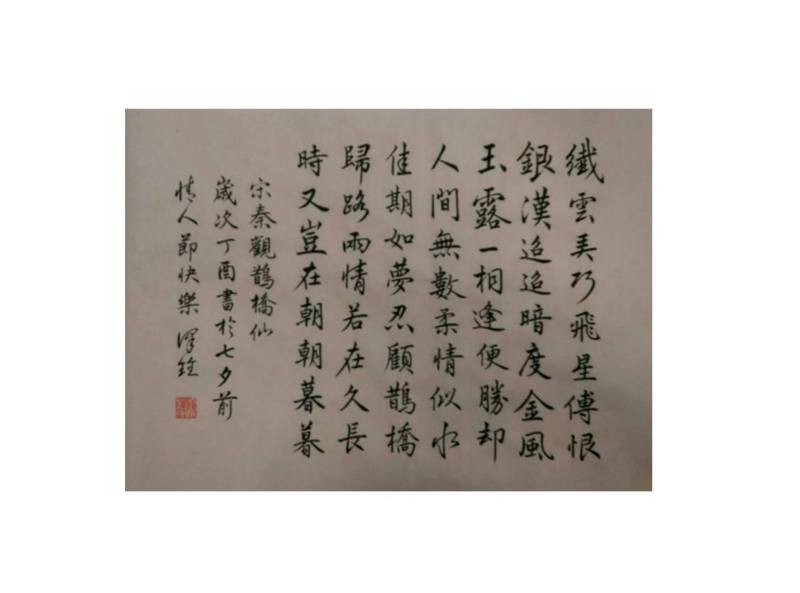 纖雲弄巧飛星傳恨
銀漢迢迢暗度金風
玉露一相逢便勝却
人間無數柔情似水
佳期如夢忍顧鵲橋
歸路兩情若在久長
時又豈在朝朝暮暮
宋秦觀鵲橋仙
歲次丁酉書於七夕前
情人節快樂 澤銓